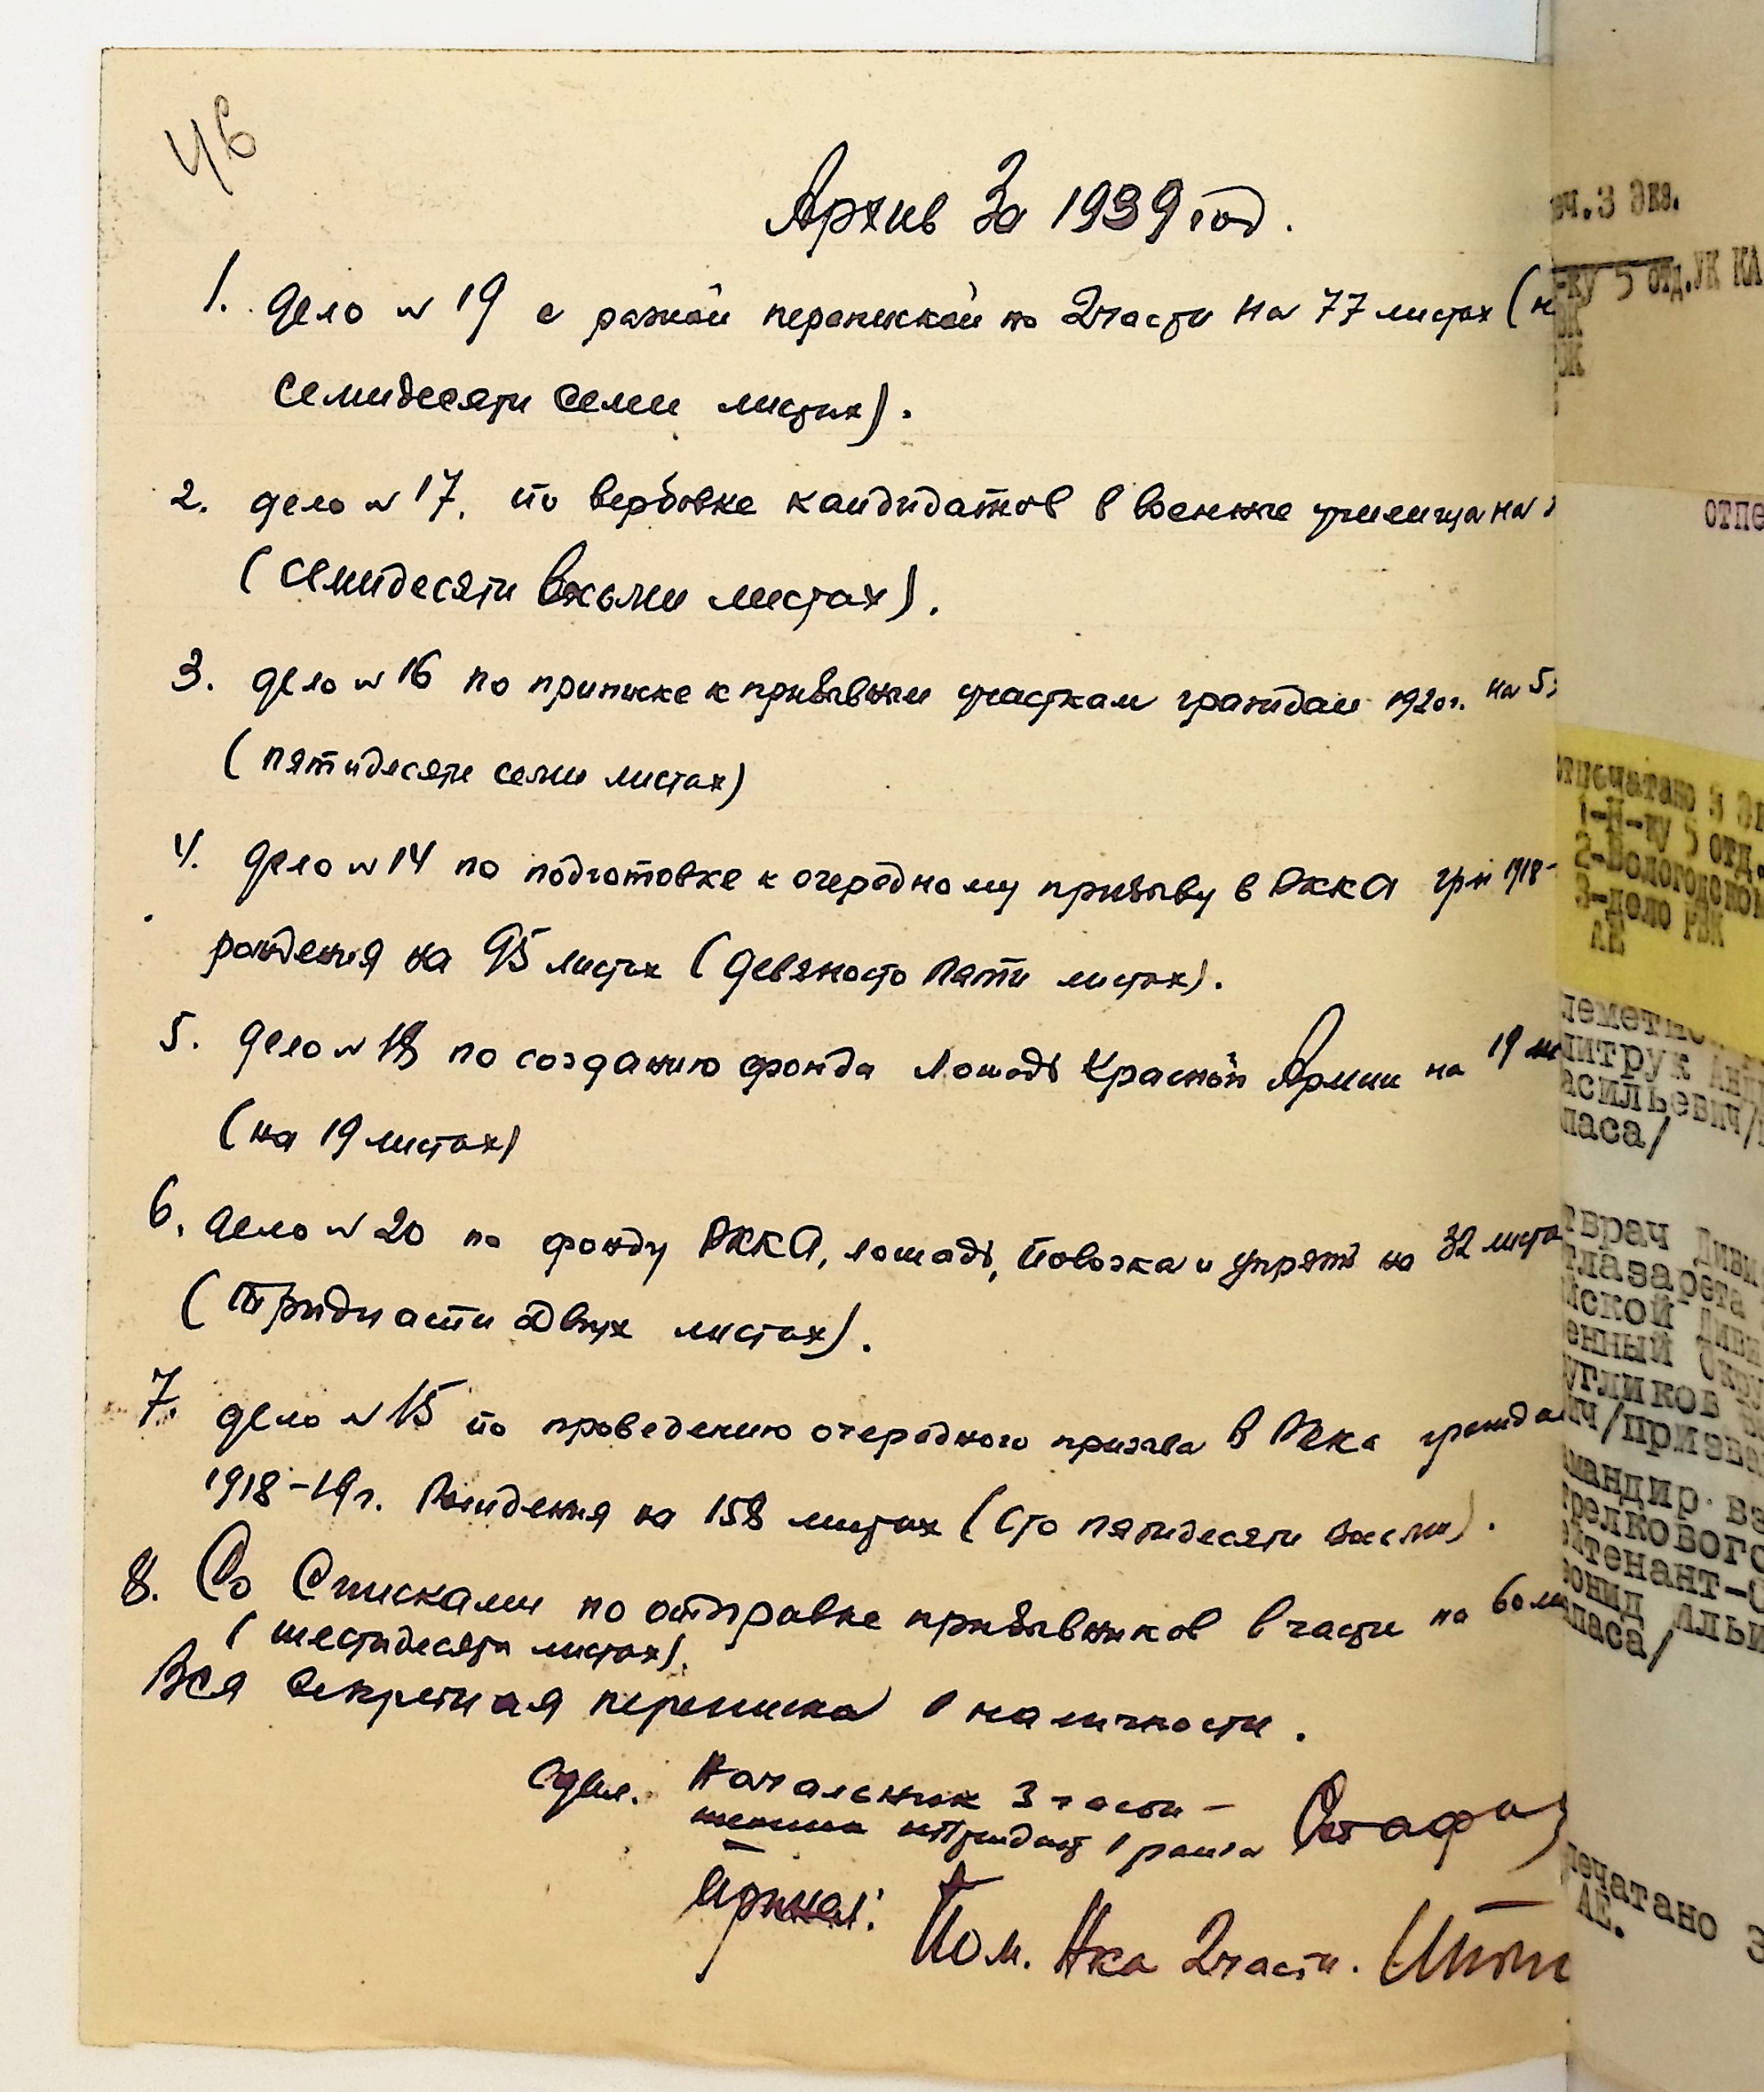 46
Архив за 1939 год.
1. дело № 19 с разной перепиской по 2 части на 77 листах (н
семидесяти семи листах).
2. дело № 17. по вербовке кандидатов в военные училища на
(семидесяти восьми листах).
3. дело № 16 по приписке к призывным участкам граждан 1920 г. на 5
(пятидесяти семи листах)
4. дело № 14 по подготовке к очередному призыву в РККА гр-н 1918-
рождения на 95 листах (девяносто пяти листах).
5. дело № 18 по созданию фонда лошадь Красной Армии на 19 ли
(на 19 листах)
6. дело № 20 по фонду РККА, лошадь, повозка и упряжь на 32 листа
(тридцати двух листах).
7. дело № 15 по проведению очередного призыва в РККА граждан
1918-19 г. рождения на 158 листах (сто пятидесяти восьми).
8. Со списками по отправке призывников в части на 60 ли
(шестидесяти листах).
Вся секретная переписка в наличности.
Сдал. Начальник 3 части -
1 ранга
Принял:
Пом. Нка 2 части.
еч. 3 экз.
-ку 5 отд. УК КА
ВК
отпе
отпечатано 3 эк
1-Н-ку 5 отд.
2-Вологодском
3-дело РВК
АЕ
леметно
митрук Анд
асильевич/
паса/
тврач диви
глазарета
йской диви
енный Окру
угликов
ич/призва
мандир вз
трелкового
ейтенант-С
онид Ильи
паса/
печатано 3
АЕ.